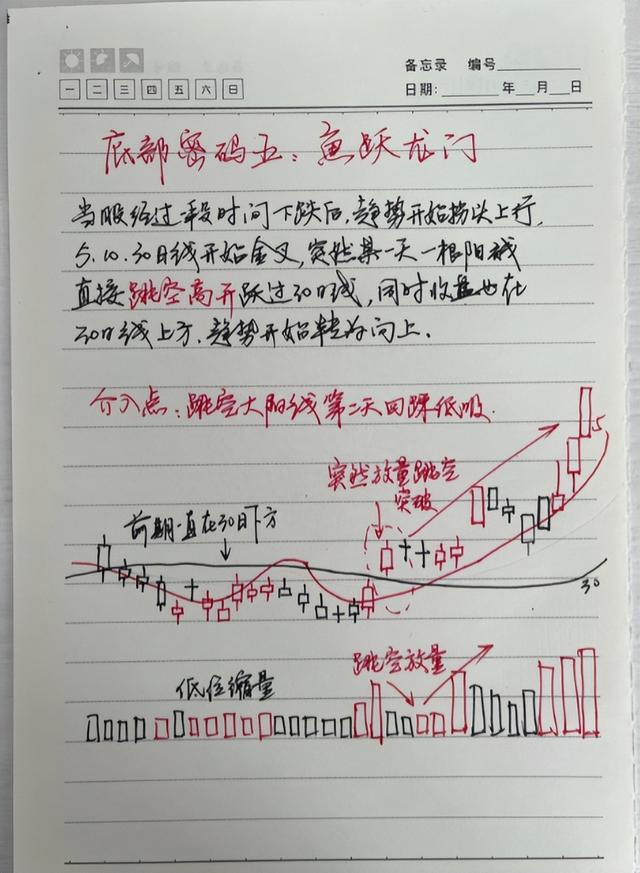 备忘录 编号
一 二 三 四 五 六 日
日期: 年 月 日
底部密码五：鱼跃龙门
当股经过一段时间下跌后，趋势开始拐头上行，
5.10.30日线开始金叉，突然某一天一根阳线
直接跳空高开跃过30日线，同时收盘也在
30日线上方，趋势开始转为向上。
介入点：跳空大阳线第二天回踩低吸.
突然放量跳空
突破
5
前期一直在30日下方
30
跳空放量
低位缩量